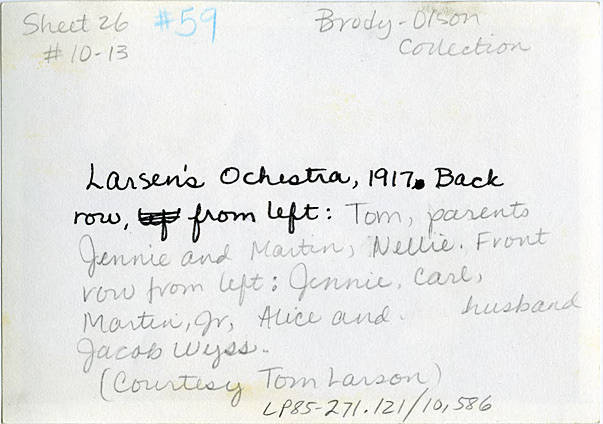 Sheet 26 #59 Brody-Olson
#10-13 Collection
Larsen's Ochestra, 1917. Back
row, from left: Tom, parents
Jennie and Martin, Nellie. Front
row from left: Jennie, Carl,
Martin, Jr, Alice and husband
Jacob Wyss.
(Courtesy Tom Larson)
LP85-271.121/10,586